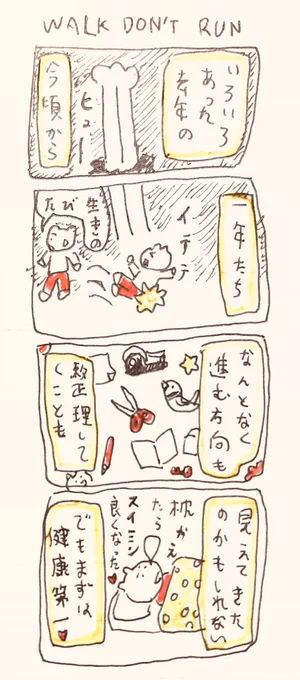 WALK DON'T RUN
いろいろ
あった
去年の
ヒュー
今頃から
一年たち
イテテ
生きの
たび
なんとなく
進む方向も
整理して
くことも
見えてきた
のかもしれない
枕かえ
たら
スイミン
良くなった♥
でもまずは
健康第一♥